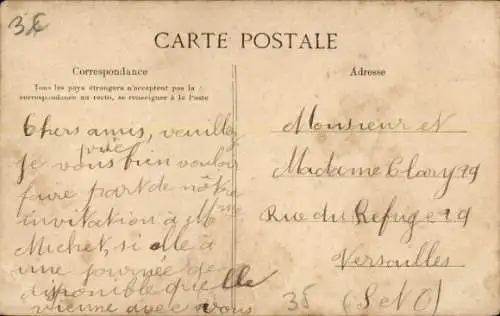 3€
CARTE POSTALE
Correspondance
Tous les pays étrangers n'acceptent pas la
correspondance au recto, se renseigner à la Poste
Chers amis, veuillez
prie
Je vous bien vouloir
faire part de nôtre
invitation à Mme
Michel, si elle a
une journée de
disponible qu'elle
vienne avec vous
Adresse
Monsieur et
Madame Clary 29
Rue du Refuge 29
Versailles
35 (S et O)